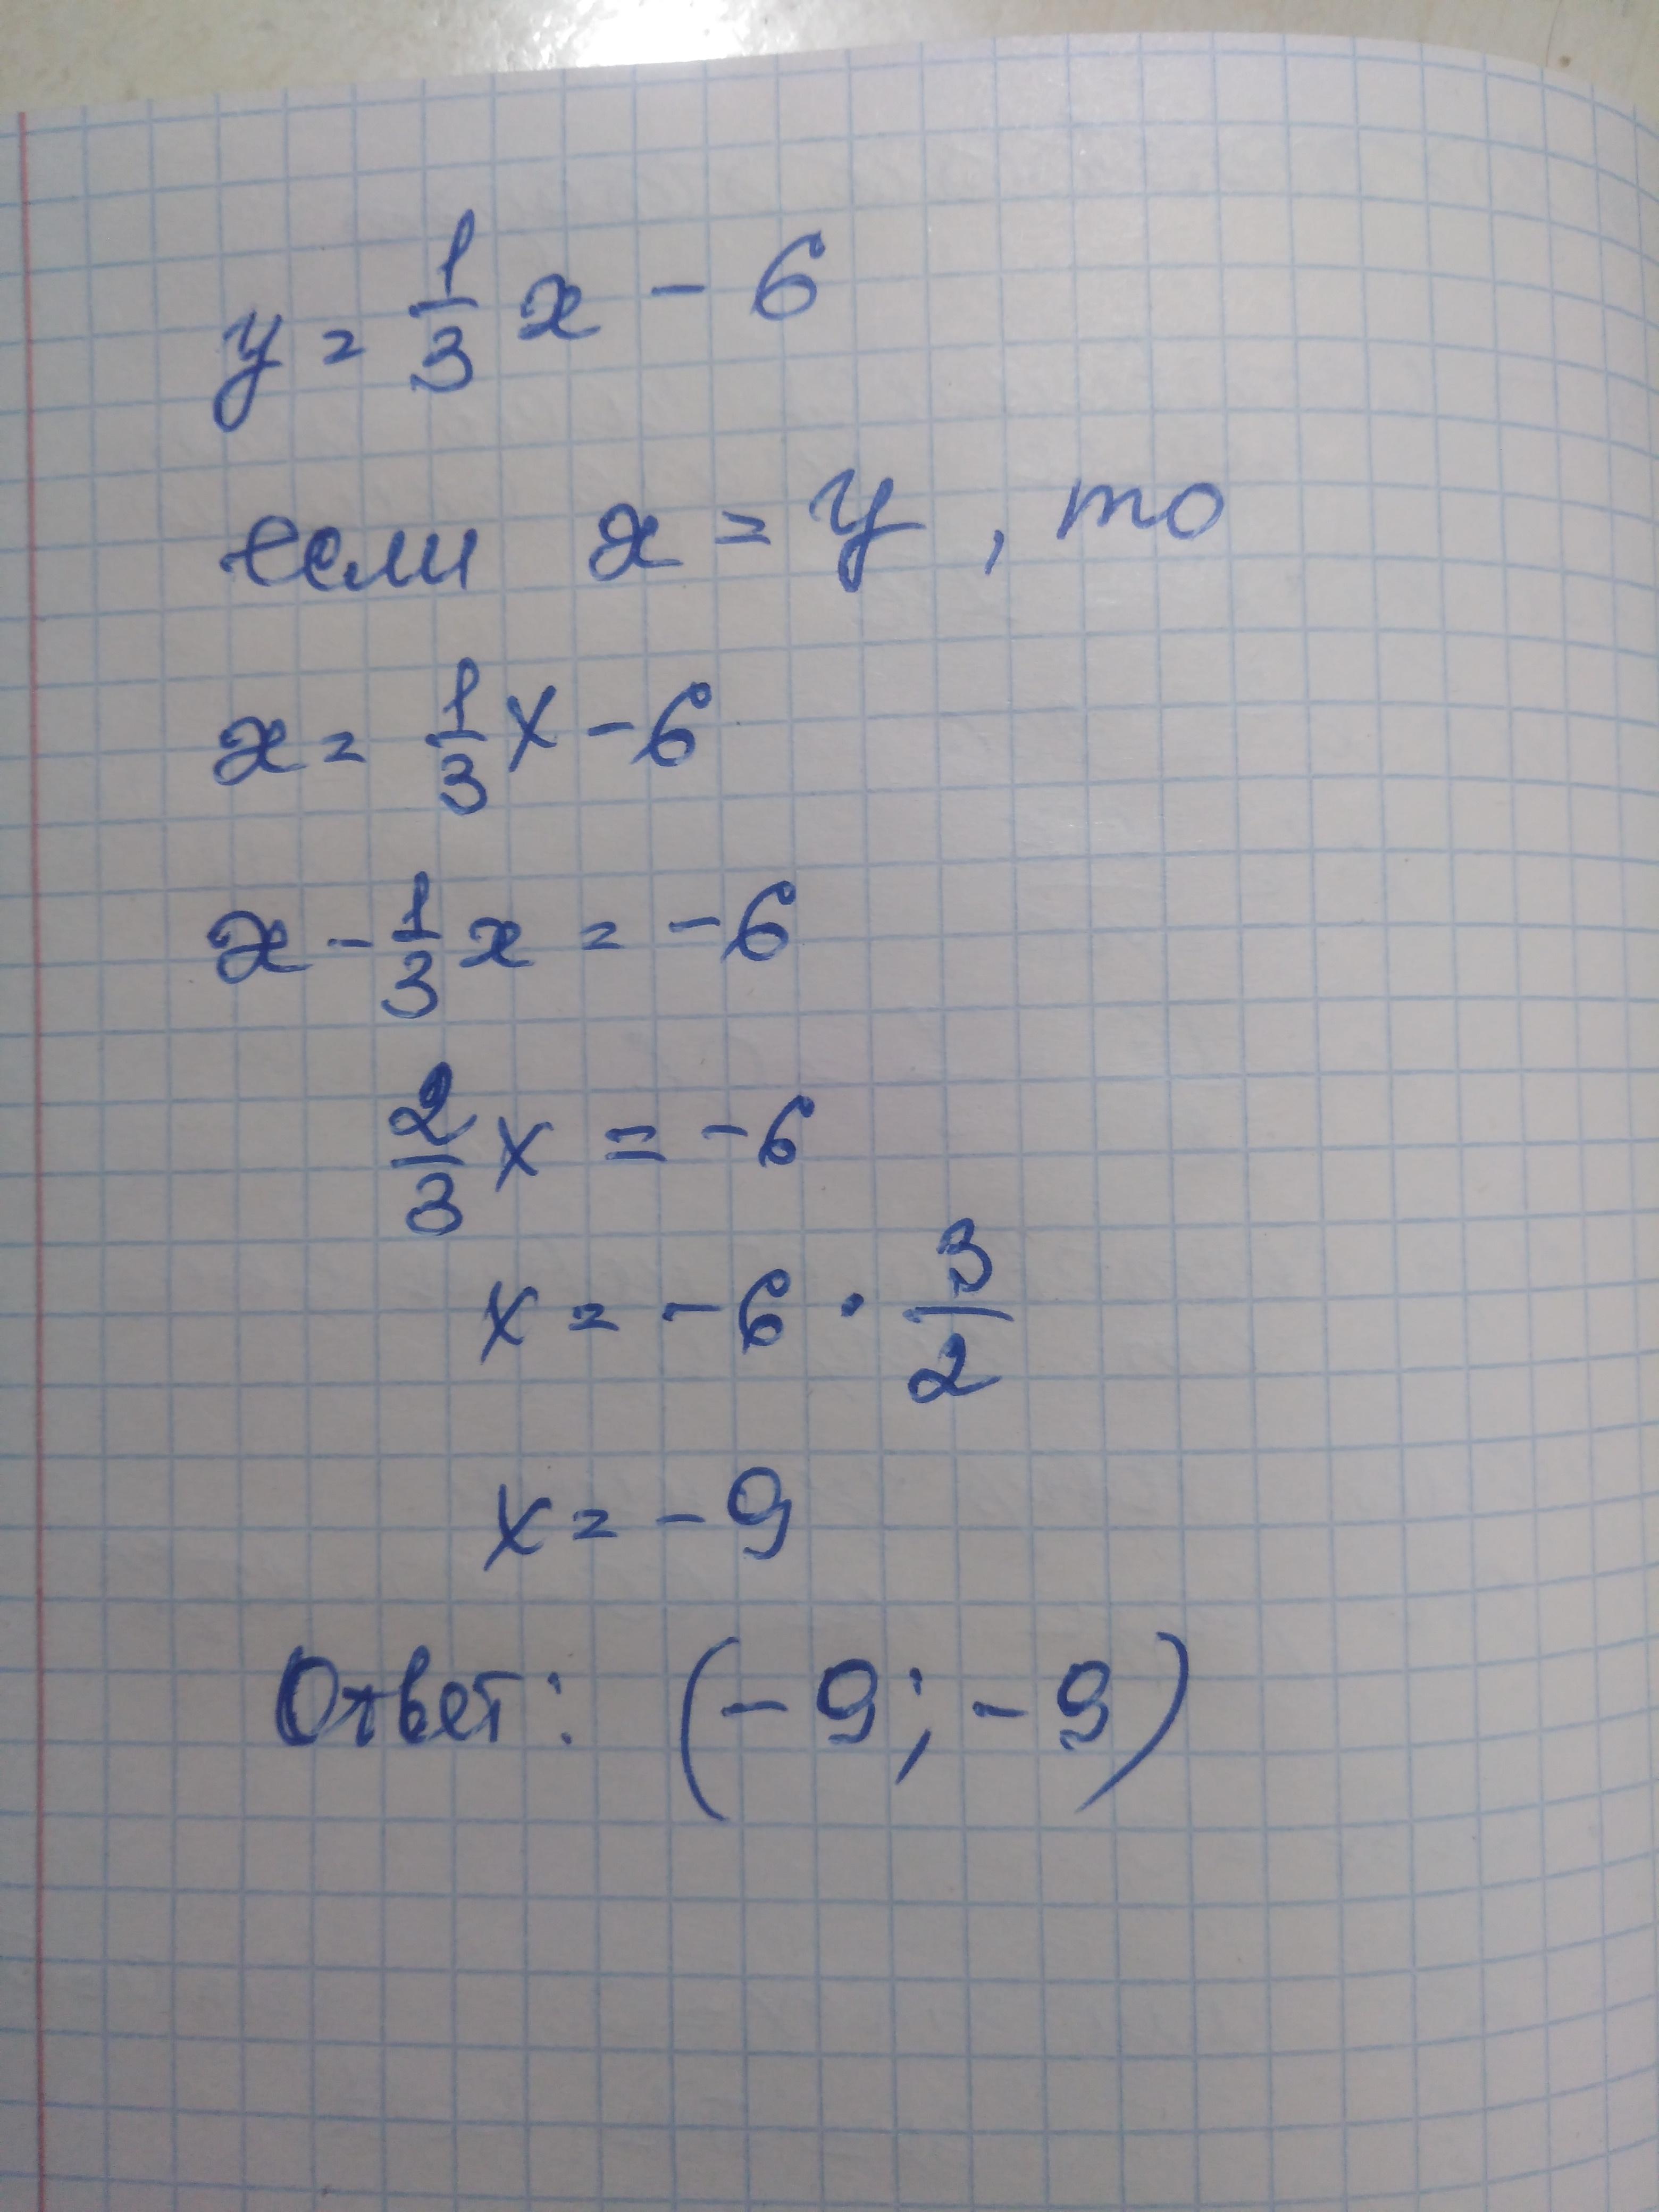 y = 1/3 x - 6
если x = y, то
x = 1/3 x - 6
x - 1/3 x = -6
2/3 x = -6
x = -6 · 3/2
x = -9
Ответ: (-9; -9)